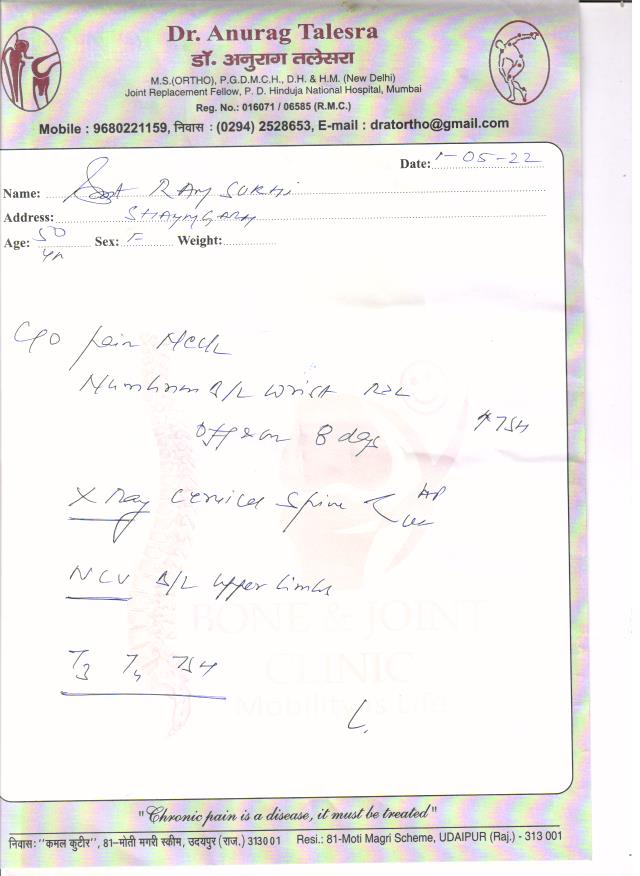 Dr. Anurag Talesra
डॉ. अनुराग तलेसरा
M.S.(ORTHO), P.G.D.M.C.H., D.H. & H.M. (New Delhi)
Joint Replacement Fellow, P. D. Hinduja National Hospital, Mumbai
Reg. No.: 016071 / 06585 (R.M.C.)
Mobile : 9680221159, निवास : (0294) 2528653, E-mail : dratortho@gmail.com
Date: 1-05-22
Name: RAM SUKHI
Address: SHAYMGARH
Age: 50 yr Sex: F Weight:
C/O pain neck
Numbness B/L wrist R>L
Off & on 8 days ↑TSH
X Ray cervical spine < AP
NCV B/L upper limbs
T3 T4 TSH
BONE & JOINT
CLINIC
Mobility is Life
"Chronic pain is a disease, it must be treated"
निवास: "कमल कुटीर", 81-मोती मगरी स्कीम, उदयपुर (राज.) 313001 Resi.: 81-Moti Magri Scheme, UDAIPUR (Raj.) - 313 001